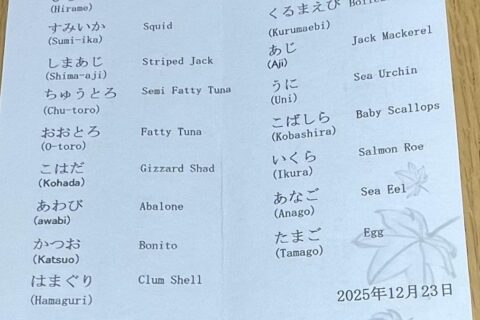 (Hirame)
すみいか Squid
(Sumi-ika)
しまあじ Striped Jack
(Shima-aji)
ちゅうとろ Semi Fatty Tuna
(Chu-toro)
おおとろ Fatty Tuna
(O-toro)
こはだ Gizzard Shad
(Kohada)
あわび Abalone
(awabi)
かつお Bonito
(Katsuo)
はまぐり Clum Shell
(Hamaguri)
くるまえび
(Kurumaebi)
あじ Jack Mackerel
(Aji)
うに Sea Urchin
(Uni)
こばしら Baby Scallops
(Kobashira)
いくら Salmon Roe
(Ikura)
あなご Sea Eel
(Anago)
たまご Egg
(Tamago)
2025年12月23日